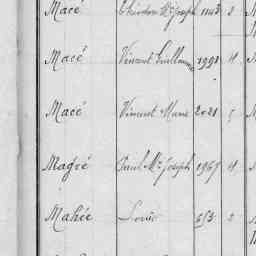 Macé Théodore Me Joseph 1143 2
Macé Vincent Guillaume 1991 4
Macé Vincent Marie 2021 5
Magré Paul Me Joseph 1969 4
Mahée Louis 653 2